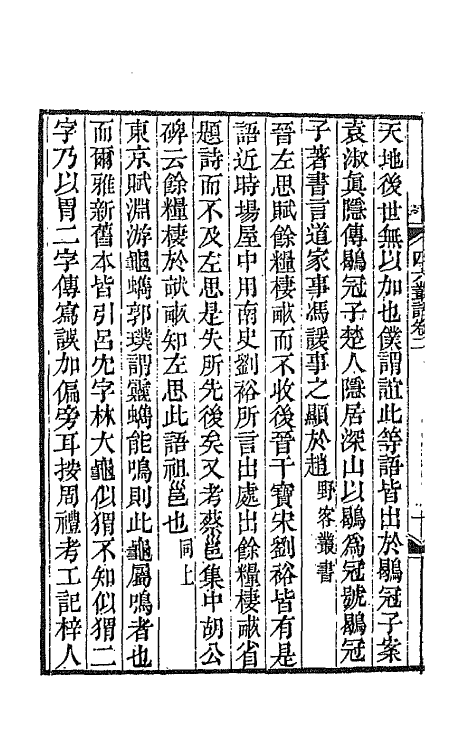 天地後世無以加也僕謂誼此等語皆出於鶡冠子案
袁淑眞隱傳鶡冠子楚人隱居深山以鶡爲冠號鶡冠
子著書言道家事馮諼事之顯於趙野客叢書
晉左思賦餘糧棲畝而不收後晉干寶宋劉裕皆有是
語近時場屋中用南史劉裕所言出處出餘糧棲畝省
題詩而不及左思是失所先後矣又考蔡邕集中胡公
碑云餘糧棲於畎畝知左思此語祖邕也同上
東京賦淵游龜蠵郭璞謂靈蠵能鳴則此龜屬鳴者也
而爾雅新舊本皆引呂忱字林大龜似猬不知似猬二
字乃以胃二字傳寫誤加偏旁耳按周禮考工記梓人
卷二
十